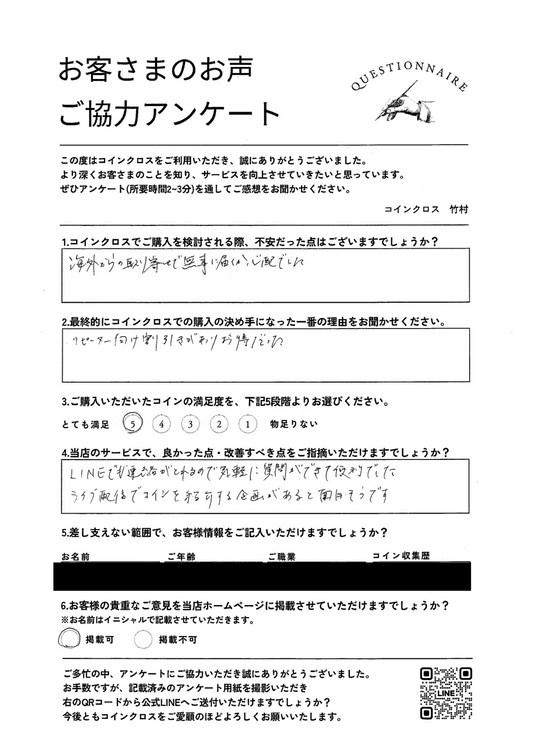 お客さまのお声
ご協力アンケート
QUESTIONNAIRE
この度はコインクロスをご利用いただき、誠にありがとうございました。
より深くお客さまのことを知り、サービスを向上させていきたいと思っています。
ぜひアンケート(所要時間2~3分)を通してご感想をお聞かせください。
コインクロス 竹村
1.コインクロスでご購入を検討される際、不安だった点はございますでしょうか?
海外からの取り寄せで無事に届くか心配でした
2.最終的にコインクロスでの購入の決め手になった一番の理由をお聞かせください。
リピーター向け割引きがありお得だった
3.ご購入いただいたコインの満足度を、下記5段階よりお選びください。
とても満足 5 4 3 2 1 物足りない
4.当店のサービスで、良かった点・改善すべき点をご指摘いただけますでしょうか?
LINEでも連絡がとれるので気軽に質問ができて便利でした
ライブ配信でコインを紹介する企画があると面白そうです
5.差し支えない範囲で、お客様情報をご記入いただけますでしょうか?
お名前 ご年齢 ご職業 コイン収集歴
6.お客様の貴重なご意見を当店ホームページに掲載させていただけますでしょうか?
※お名前はイニシャルで記載させていただきます。
掲載可 掲載不可
ご多忙の中、アンケートにご協力いただき誠にありがとうございます。
お手数ですが、記載済みのアンケート用紙を撮影いただき
右のQRコードから公式LINEへご送付いただけますと幸いです。
今後ともコインクロスをご愛顧のほどよろしくお願いいたします。
LINE